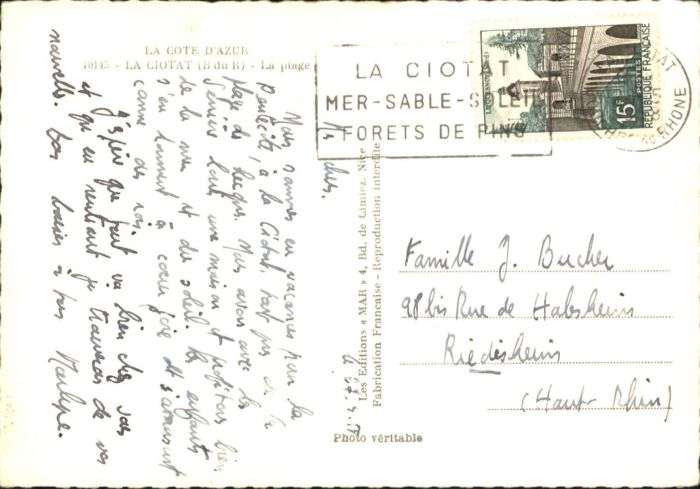 LA COTE D'AZUR
10145 - LA CIOTAT (B du R) - La plage
LA CIOTAT
MER-SABLE-SOLEIL
FORETS DE PINS
15F
POSTES
REPUBLIQUE FRANÇAISE
RHONE
chers,
Nous sommes en vacances pour la
à la Ciotat, tout près de la
plage des Nous avons avec les
loué une maison et profitons bien
de la mer et du soleil. les enfants
s'en donnent à cœur joie et s'amusent
comme des rois.
J'espère que tout va bien chez vous
et qu'en rentrant je trouverai de vos
nouvelles. bons baisers à tous
Les Editions « MAR » 4, Bd. de Cimiez, Nice
Fabrication Française - Reproduction interdite
Photo véritable
Famille J. Bucher
98bis Rue de Habsheim
Riedisheim
(Haut Rhin)